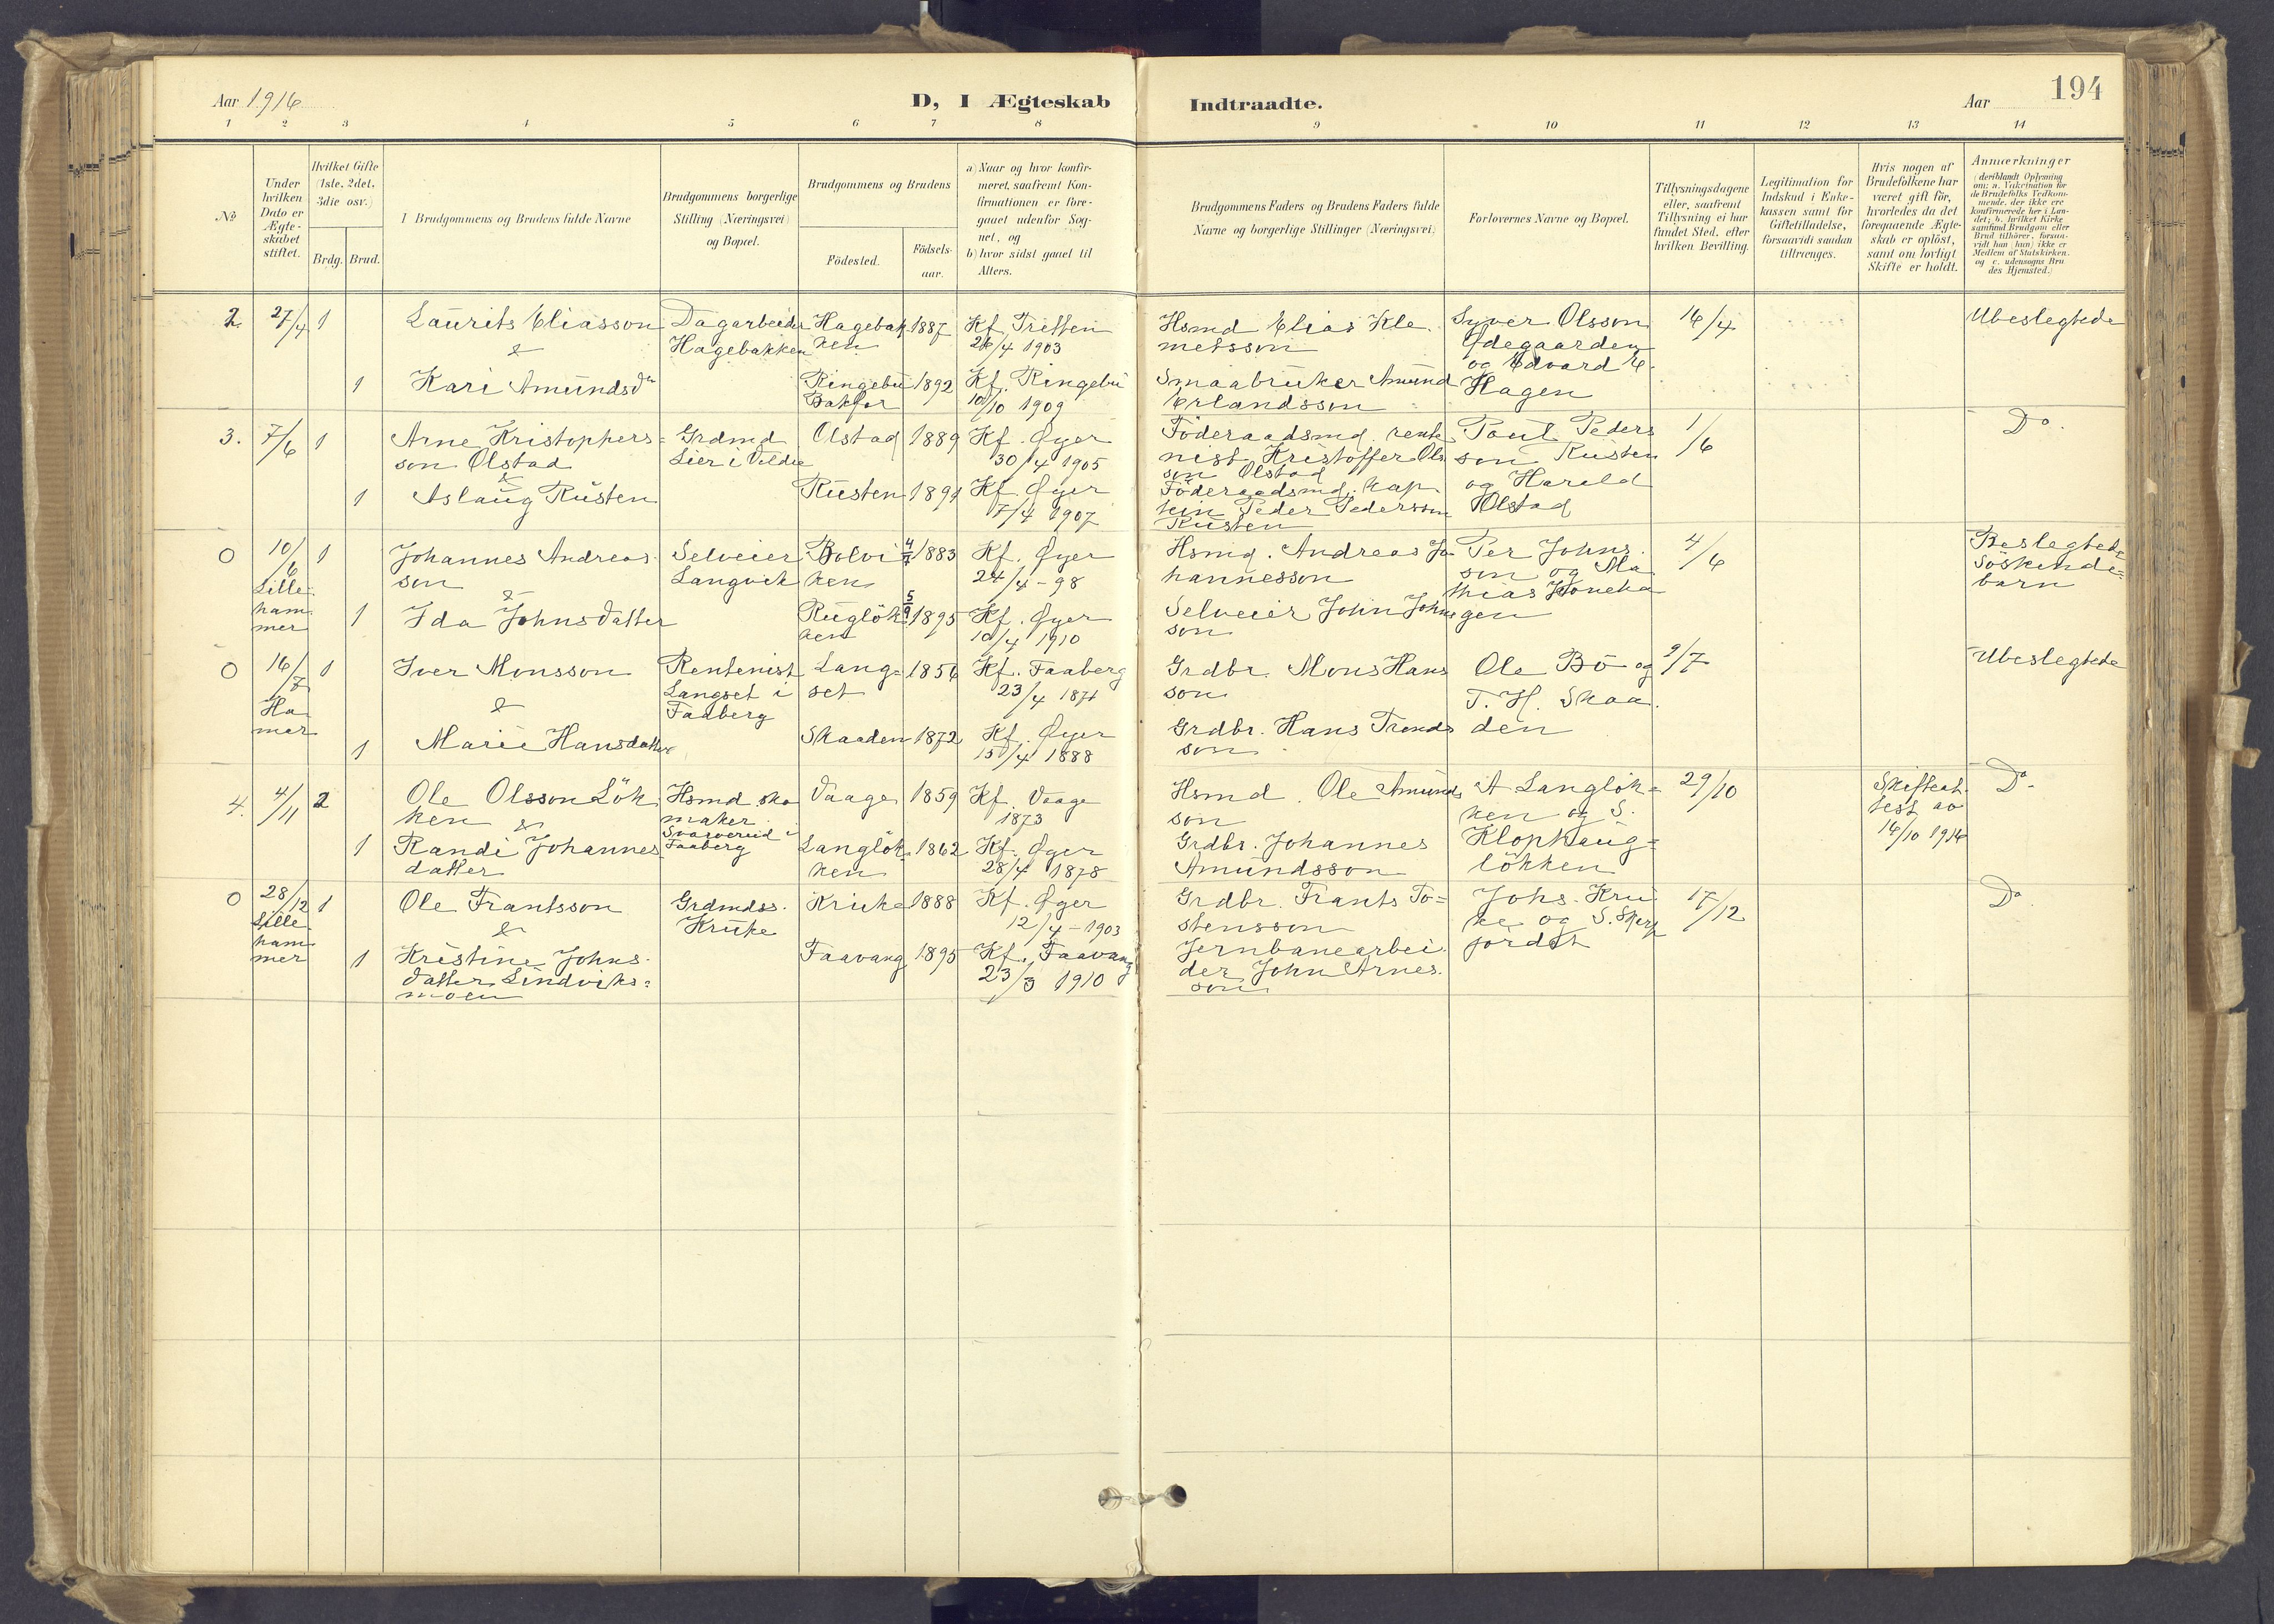 Aar 1916
D, I Ægteskab
Indtraadte.
Aar
194
1 2 3 4 5 6 7 8 9 10 11 12 13 14
No
Under hvilken Dato er Ægte-skabet stiftet.
Hvilket Gifte (1ste, 2det, 3die osv.)
Brdg. Brud.
Brudgommens og Brudens fulde Navne
Brudgommens borgerlige Stilling (Næringsvei) og Bopæl.
Brudgommens og Brudens
Födested.
Födsels-aar.
a) Naar og hvor konfir-
meret, saafremt Kon-
firmationen er fore-
gaaet udenfor Sog-
net, og
b) hvor sidst gaaet til
Alters.
Brudgommens Faders og Brudens Faders fulde
Navne og borgerlige Stillinger (Næringsvei)
Forlovernes Navne og Bopæl.
Tillysningsdagene
eller, saafremt
Tillysning ei har
fundet Sted, efter
hvilken Bevilling.
Legitimation for
Indskud i Enke-
kassen samt for
Giftetilladelse,
forsaavidt saadan
tiltrænges.
Hvis nogen af
Brudefolkene har
været gift før,
hvorledes da det
foregaaende Ægte-
skab er opløst,
samt om lovligt
Skifte er holdt.
Anmærkninger
(deriblandt Oplysning
om: a. Vakcination for
de Brudefolks Vedkom-
mende, der ikke ere
konfirmerede her i Lan-
det; b. hvilket Kirke
samfund Brudgom eller
Brud tilhører, forsaa-
vidt han (hun) ikke er
Medlem af Statskirken.
og c. udensogns Bru
des Hjemsted.)
2. 27/4 1
Laurits Eliasson
&
Dagarbeider
Hagebakken
Hagebak
ken
1887
Kf Tretten
26/4 1903
Hsmd Elias Kle.
metsson
Syver Olsson
Ødegaarden
og Edvard E.
Hagen
16/4
Ubeslegtede
1
Kari Amundsdr
Ringebu
1892
Kf. Ringebu
10/10 1909
Smaabruker Amund
Erlandsson
3. 7/6 1
Arne Kristophers=
son Olstad
&
Grdmd
Lier i Veldre
Olstad
1889
Kf. Øyer
30/4 1905
Föderaadsmd. rente
nist Kristoffer Ols
son Olstad
Poul Peders
son Rusten
og Harald
Olstad
1/6
Do.
1
Aslaug Rusten
Rusten
1891
Kf. Øyer
7/4 1907
Föderaadsmd. kap
tein Peder Pedersson
Rusten
0 10/6
Lille-
ham-
mer
1
Johannes Andreas-
son
&
Selveier
Langvik
Bolvi
ken
1883
Kf. Øyer
24/4-98
Hsmd. Andreas Jo-
hannesson
Per Johns.
son og Ma
thias
gen
4/6
Beslegtede
Söskende=
barn
1
Ida Johnsdatter
Ruglök
ken
5/9 1895
Kf. Øyer
10/4 1910
Selveier John Johns
son
0 16/
Ha
mar
1
Iver Monsson
&
Rentenist
Langset i
Faaberg
Lang-
set
1856
Kf. Faaberg
23/4 1871
Grdbr. Mons Hans
son
Ole Bö og
T. H. Skaa.
den
9/7
Ubeslegtede
1
Marie Hansdatter
Skaaden
1872
Kf. Øyer
15/4 1888
Grdbr. Hans Tronds
son
4. 4/11 2
Ole Olsson Lök
ken &
Hsmd sko
maker
Svarvereid i
Faaberg
Vaage
1859
Kf. Vaage
1873
Hsmd. Ole Amunds
son
A Langlök=
ken og S.
Klophaug=
lökken
29/10
Skifteat.
test av
14/10 1916
Do.
1
Randi Johannes
datter
Langlök
ken
1862
Kf. Øyer
28/4 1878
Grdbr. Johannes
Amundsson
0 28/12
Lille
ham-
mer
1
Ole Frantsson
&
Grdmdss.
Kruke
Kruke
1888
Kf. Øyer
12/4-1903
Grdbr. Frants To=
stensson
Johs. Kru
ke og S. Skerp
fordet
17/12
Do.
1
Kristine Johns-
datter Lindviks=
moen
Faavang
1895
Kf. Faavang
23/3 1910
Jernbanearbei.
der John Arnes.
son